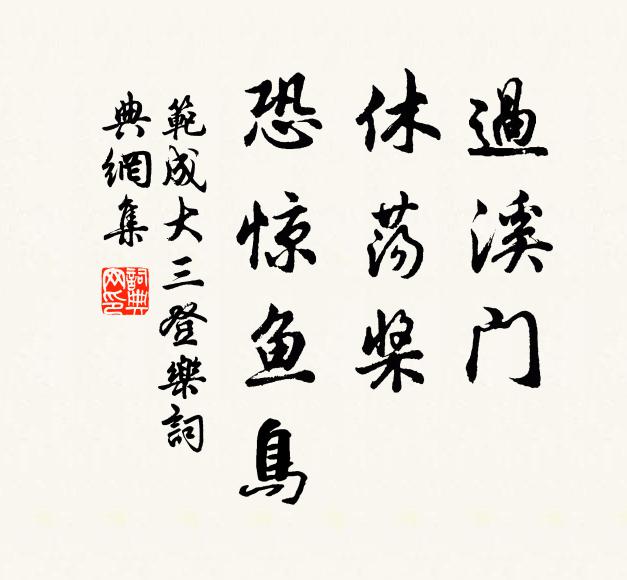 過溪门
休荡桨
恐惊鱼鳥
範成大三登樂詞
典網集
詞典網印